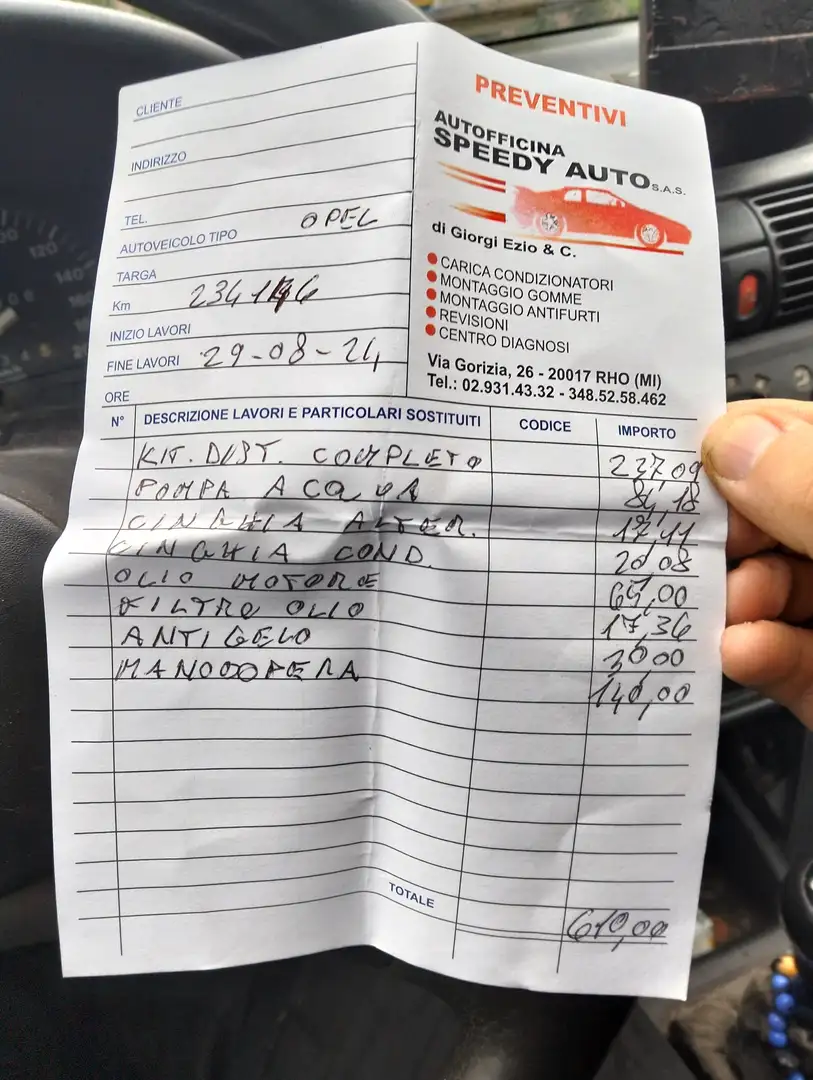 PREVENTIVI
AUTOFFICINA
SPEEDY AUTO S.A.S.
di Giorgi Ezio & C.
CARICA CONDIZIONATORI
MONTAGGIO GOMME
MONTAGGIO ANTIFURTI
REVISIONI
CENTRO DIAGNOSI
Via Gorizia, 26 - 20017 RHO (MI)
Tel.: 02.931.43.32 - 348.52.58.462
CLIENTE
INDIRIZZO
TEL.
AUTOVEICOLO TIPO OPEL
TARGA
Km
INIZIO LAVORI
FINE LAVORI 29-08-24
ORE
N° DESCRIZIONE LAVORI E PARTICOLARI SOSTITUITI CODICE IMPORTO
KIT. DIST. COMPLETO 237,09
POMPA ACQUA 84,18
CINGHIA ALTER. 17,41
CINGHIA COND. 20,08
OLIO MOTORE
FILTRO OLIO 17,36
ANTIGELO 30,00
MANODOPERA 140,00
TOTALE 610,00
120
140